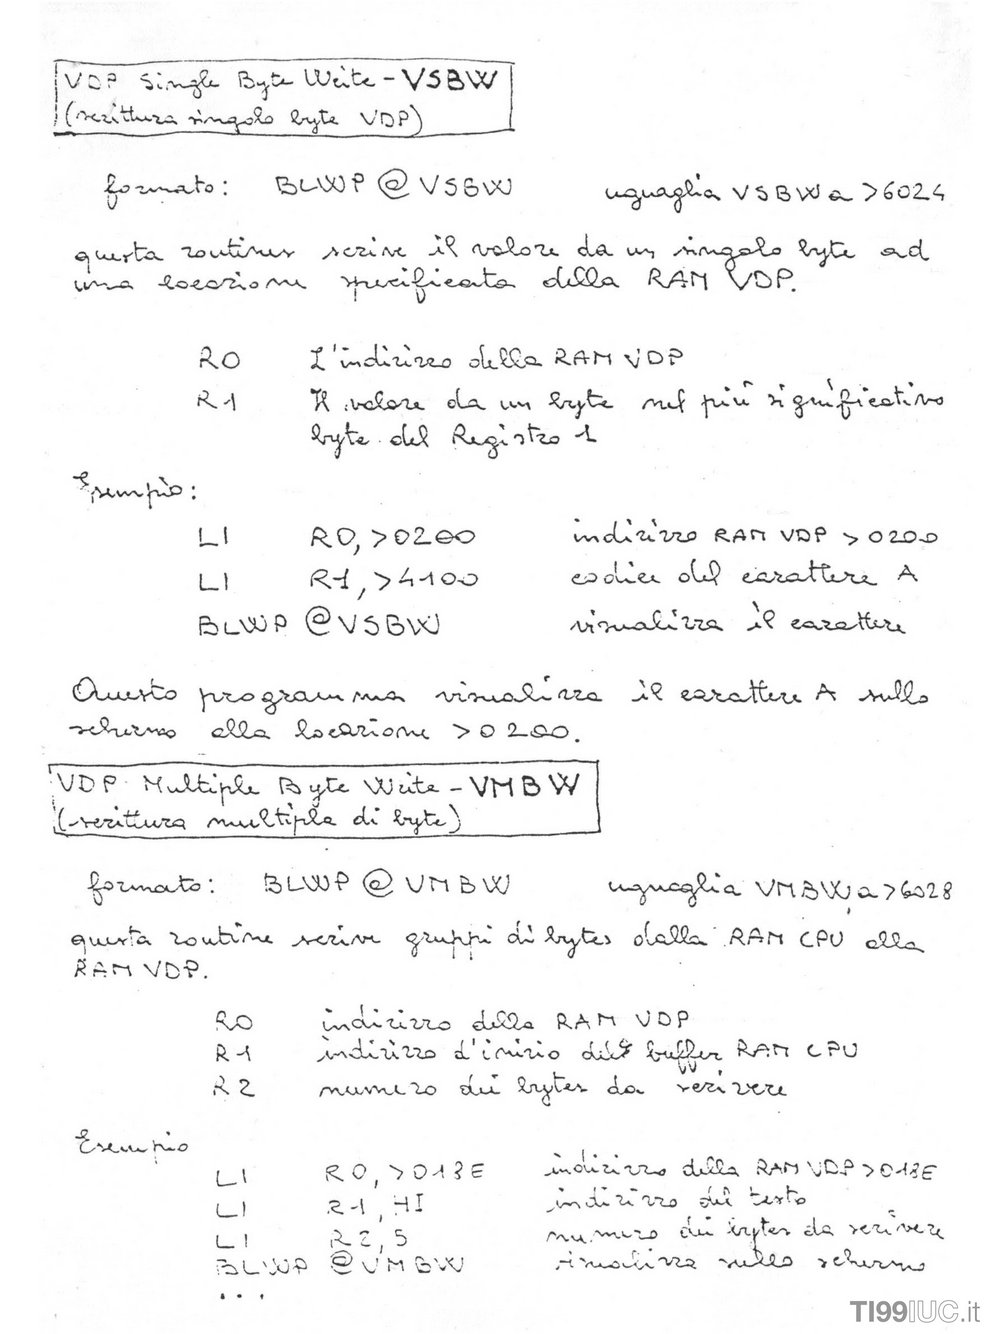 VDP Single Byte Write - VSBW
(scrittura singolo byte VDP)
formato: BLWP @VSBW uguaglia VSBW a >6024
questa routines scrive il valore da un singolo byte ad
una locazione specificata della RAM VDP.
R0 L'indirizzo della RAM VDP
R1 Il valore da un byte nel più significativo
byte del Registro 1
Esempio:
LI R0, >0200 indirizzo RAM VDP >0200
LI R1, >4100 codice del carattere A
BLWP @VSBW visualizza il carattere
Questo programma visualizza il carattere A sullo
schermo alla locazione >0200.
VDP Multiple Byte Write - VMBW
(scrittura multipla di byte)
formato: BLWP @VMBW uguaglia VMBW a >6028
questa routine scrive gruppi di bytes dalla RAM CPU alla
RAM VDP.
R0 indirizzo della RAM VDP
R1 indirizzo d'inizio del buffer RAM CPU
R2 numero dei bytes da scrivere
Esempio
LI R0, >018E indirizzo della RAM VDP >018E
LI R1, HI indirizzo del testo
LI R2, 5 numero dei bytes da scrivere
BLWP @VMBW visualizza sullo schermo
...
TI99IUC.it